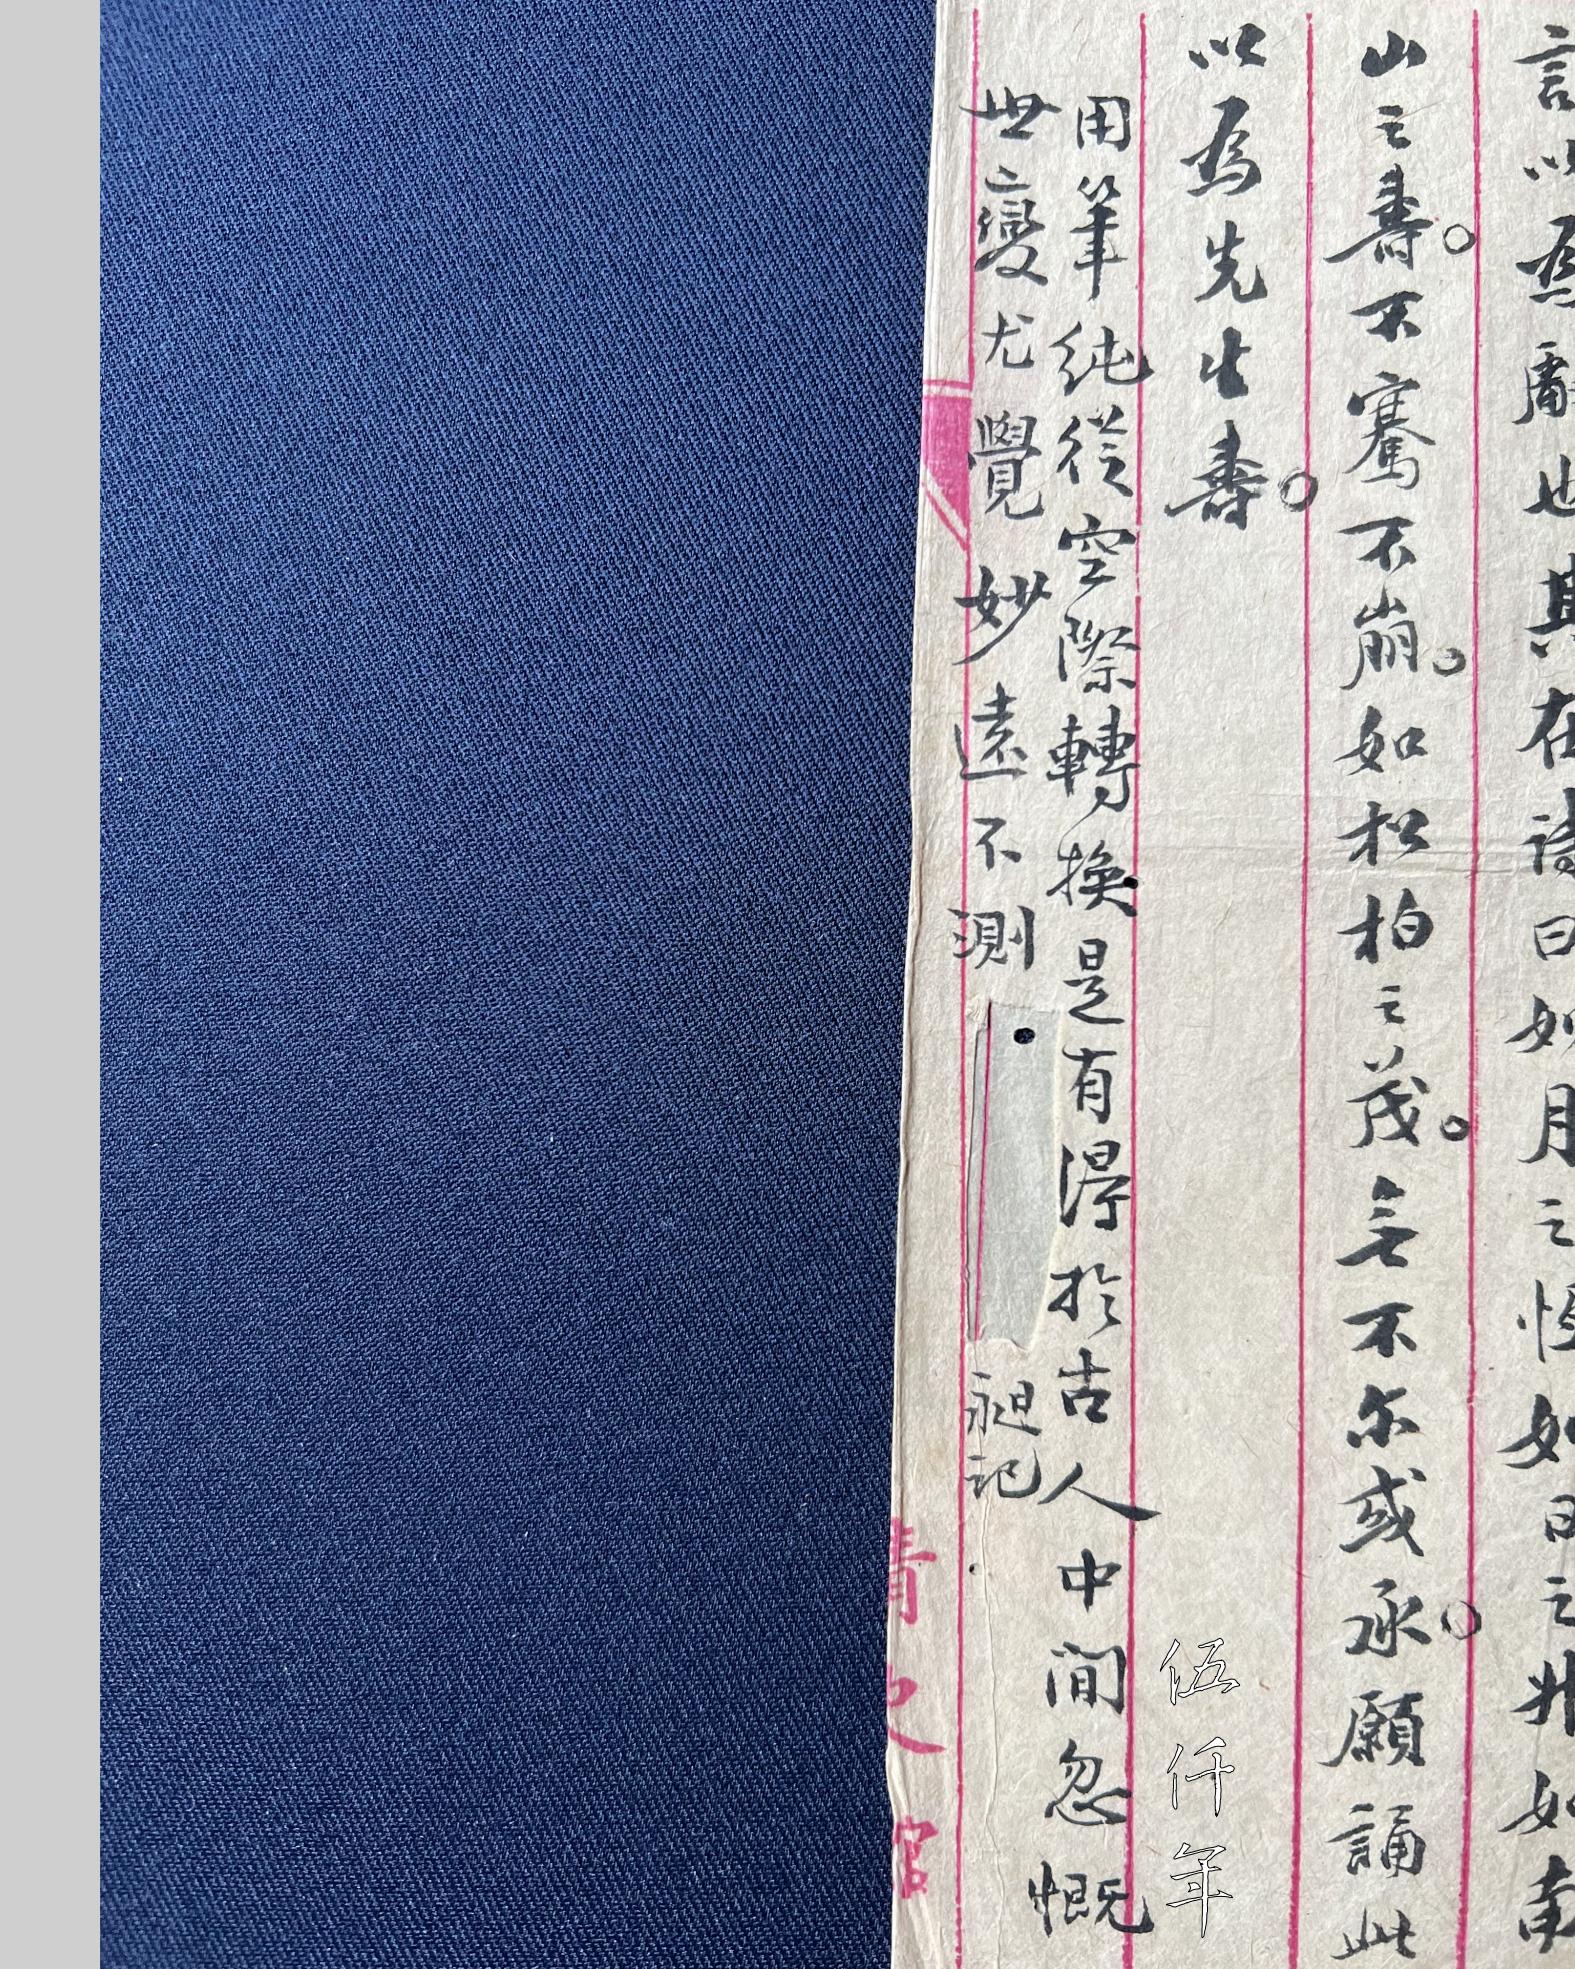 言以為辭也其在詩曰如月之恆如日之升如南
山之壽不騫不崩如松柏之茂無不尔或承願誦此
以為先生壽
用筆純從空際轉換是有得於古人中間忽慨
世變尤覺妙遠不測
昶記
清史館
伍仟年